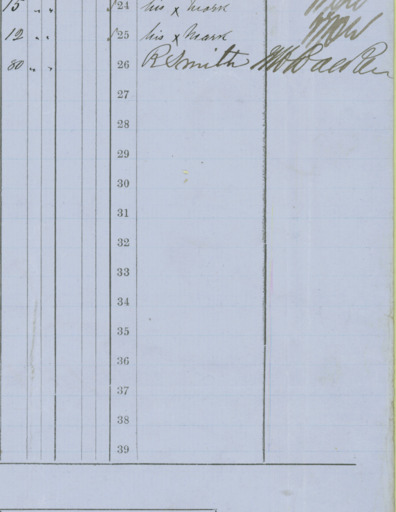 15 " " 24 his x mark
12 " " 25 his x mark
30 " " 26 R Smith
27
28
29
30
31
32
33
34
35
36
37
38
39